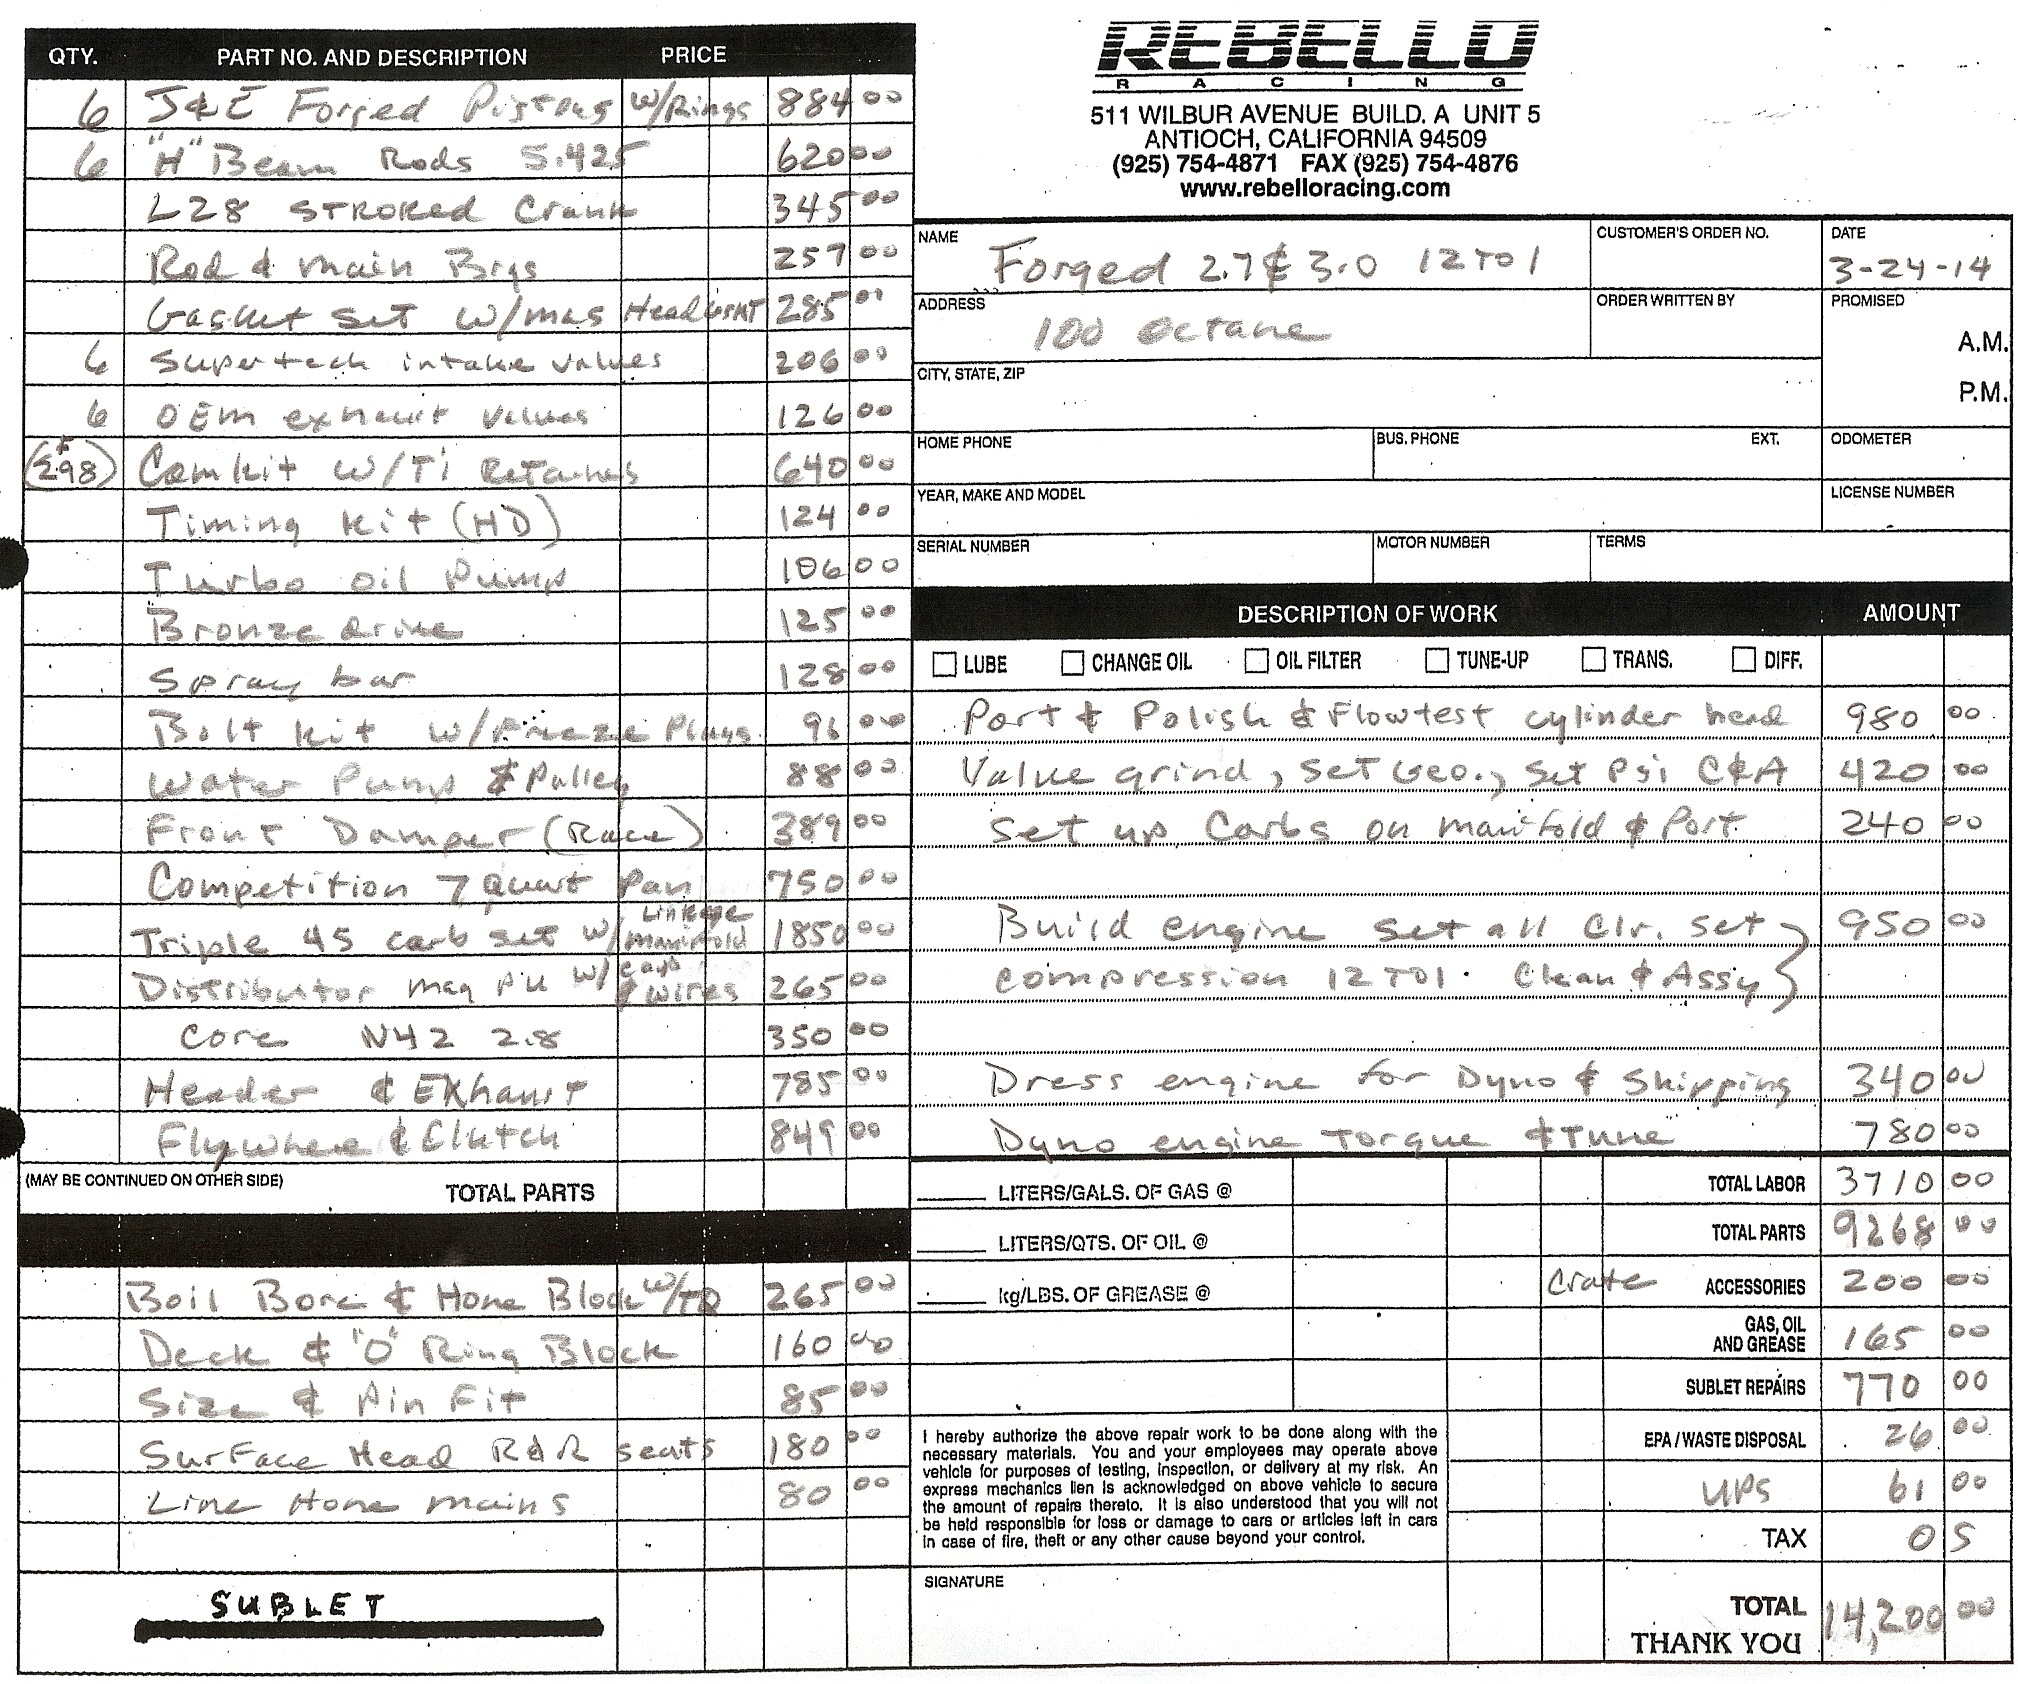 QTY. PART NO. AND DESCRIPTION PRICE
6 J&E Forged Pistons w/Rings 884 00
6 "H" Beam Rods 5.425 620 00
L28 STROKED Crank 345 00
Rod & main Brgs 257 00
Gasket set w/mls Head 285
6 Supertech intake valves 206 00
6 OEM exhaust valves 126 00
Camkit w/Ti Retainers 640 00
Timing kit (HD) 124 00
Turbo oil Pump 106 00
Bronze drive 125 00
Spray bar 128 00
Bolt kit w/Freeze Plugs 96 00
Water Pump & Pulley 88 00
Front Damper (Race) 389 00
Competition 7 Quart Pan 750 00
Triple 45 carb set w/ Linkage manifold 1850 00
Distributor mag PU w/ caps & wires 265 00
Core N42 2.8 350 00
Header & Exhaust 785 00
Flywheel & Clutch 849 00
(MAY BE CONTINUED ON OTHER SIDE) TOTAL PARTS
Boil Bore & Hone Block w/TQ 265 00
Deck & "O" Ring Block 160 00
Size & Pin Fit 85 00
Surface Head R&R seats 180 00
Line Hone mains 80 00
SUBLET
REBELLO
RACING
511 WILBUR AVENUE BUILD. A UNIT 5
ANTIOCH, CALIFORNIA 94509
(925) 754-4871 FAX (925) 754-4876
www.rebelloracing.com
NAME Forged 2.7 & 3.0 12 TO 1
CUSTOMER'S ORDER NO.
DATE 3-24-14
ADDRESS 100 Octane
ORDER WRITTEN BY
PROMISED
A.M.
P.M.
CITY, STATE, ZIP
HOME PHONE BUS. PHONE EXT. ODOMETER
YEAR, MAKE AND MODEL LICENSE NUMBER
SERIAL NUMBER MOTOR NUMBER TERMS
DESCRIPTION OF WORK AMOUNT
LUBE CHANGE OIL OIL FILTER TUNE-UP TRANS. DIFF.
Port & Polish & Flowtest cylinder head 980 00
Valve grind, set Geo., set Psi C&A 420 00
Set up Carbs on manifold & Port 240 00
Build engine set all Clr. set 950 00
compression 12 TO 1. Clean & Assy
Dress engine for Dyno & Shipping 340 00
Dyno engine Torque & Tune 780 00
LITERS/GALS. OF GAS @ TOTAL LABOR 3710 00
LITERS/QTS. OF OIL @ TOTAL PARTS 9268 00
kg/LBS. OF GREASE @ Crate ACCESSORIES 200 00
GAS, OIL
AND GREASE 165 00
SUBLET REPAIRS 770 00
EPA / WASTE DISPOSAL 26 00
UPS 61 00
TAX OS
I hereby authorize the above repair work to be done along with the
necessary materials. You and your employees may operate above
vehicle for purposes of testing, inspection, or delivery at my risk. An
express mechanics lien is acknowledged on above vehicle to secure
the amount of repairs thereto. It is also understood that you will not
be held responsible for loss or damage to cars or articles left in cars
in case of fire, theft or any other cause beyond your control.
SIGNATURE
TOTAL 14,200 00
THANK YOU